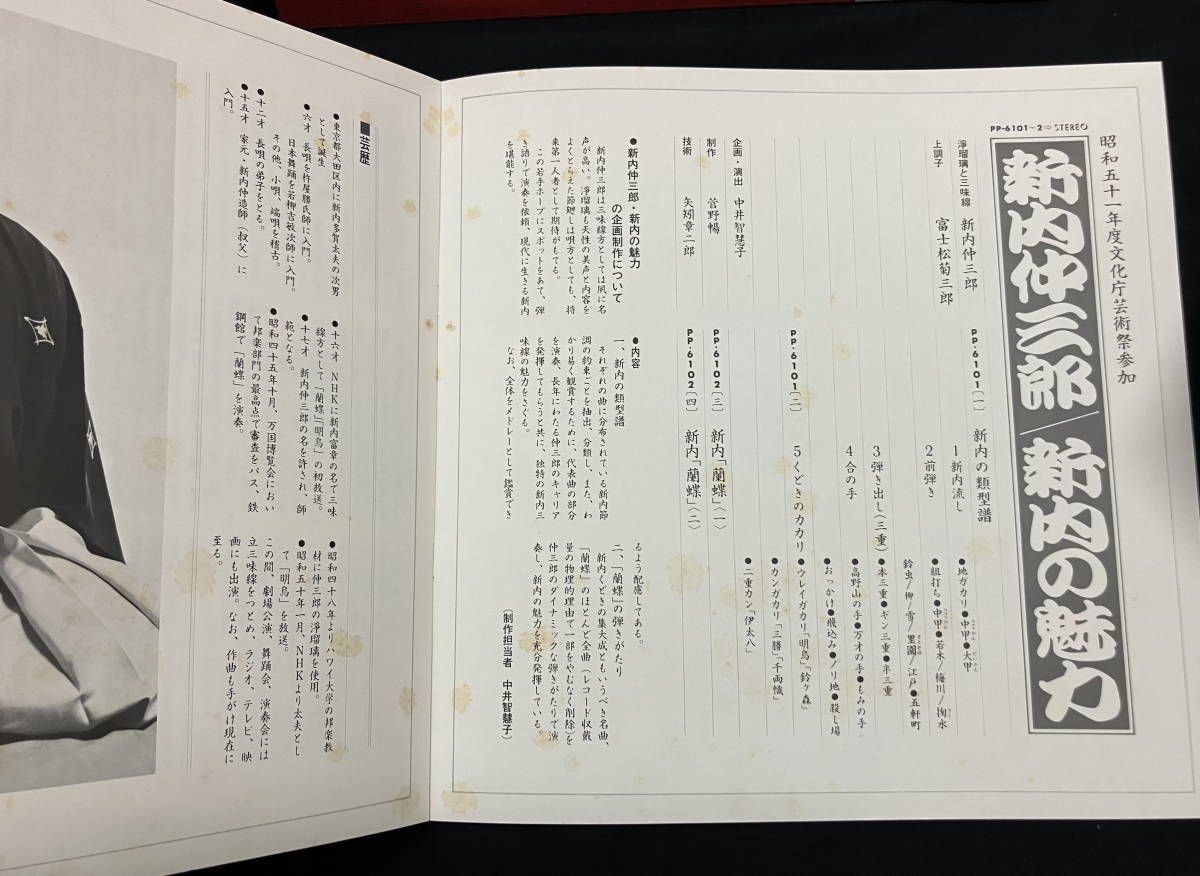 PP-6101~2⇨STEREO
昭和五十一年度文化庁芸術祭参加
新内仲三郎/新内の魅力
浄瑠璃と三味線 新内仲三郎
上調子 富士松菊三郎
企画・演出 中井智慧子
制作 菅野暢
技術 矢矧章二郎
PP・6101〔一〕 新内の類型譜
1 新内流し
2 前弾き
3 弾き出し(三重)
4 合の手
PP・6101〔二〕
5 くどきのカカリ
PP・6102〔三〕 新内「蘭蝶」〈一〉
PP・6102〔四〕 新内「蘭蝶」〈二〉
●地ガカリ●中甲●大甲
●組打ち●中甲●若木/梅川/掬水
鈴虫/柳/雪/里園/江戸●五軒町
●本三重●ギン三重●半三重
●高野山の手●万才の手●もみの手
●おっかけ●飛込み●ノリ地●殺し場
●ウレイガカリ「明烏」「鈴ヶ森」
●カンガカリ「三勝」「千両幟」
●二重カン「伊太八」
●新内仲三郎・新内の魅力
の企画制作について
新内仲三郎は三味線方としては夙に名
声が高い。浄瑠璃も天性の美声と内容を
よくとらえた節廻しは唄方としても、将
来第一人者として期待がもてる。
この若手ホープにスポットをあて、弾
き語りで演奏を依頼、現代に生きる新内
を堪能する。
●内容
一、新内の類型譜
それぞれの曲に分布されている新内節
調の約束ごとを抽出、分類し、また、わ
かり易く観賞するために、代表曲の部分
を演奏、長年にわたる仲三郎のキャリア
を発揮してもらうと共に、独特の新内三
味線の魅力をさぐる。
なお、全体をメドレーとして鑑賞でき
るよう配慮してある。
二、「蘭蝶」の弾きがたり
新内くどきの集大成ともいうべき名曲、
「蘭蝶」のほとんど全曲(レコード収載
量の物理的理由で一部をやむなく削除)を
仲三郎のダイナミックな弾きがたりで演
奏し、新内の魅力を充分発揮している。
(制作担当者 中井智慧子)
■芸歴
●東京都大田区内に新内多賀太夫の次男
として誕生
●六才 長唄を杵屋勝氏師に入門。
日本舞踊を若柳吉敏次師に入門。
その他、小唄、端唄を稽古。
●十二才 長唄の弟子をとる。
●十五才 家元・新内仲造師(叔父)に
入門。
●十六才 NHKに新内富章の名で三味
線方として「蘭蝶」「明烏」の初放送。
●十七才 新内仲三郎の名を許され、師
範となる。
●昭和四十五年十月、万国博覧会におい
て邦楽部門の最高点で審査をパス、鉄
鋼館で「蘭蝶」を演奏。
●昭和四十八年よりハワイ大学の邦楽教
材に仲三郎の浄瑠璃を使用。
●昭和五十年一月、NHKより太夫とし
て「明烏」を放送。
この間、劇場公演、舞踊会、演奏会には
立三味線をつとめ、ラジオ、テレビ、映
画にも出演。なお、作曲も手がけ現在に
至る。